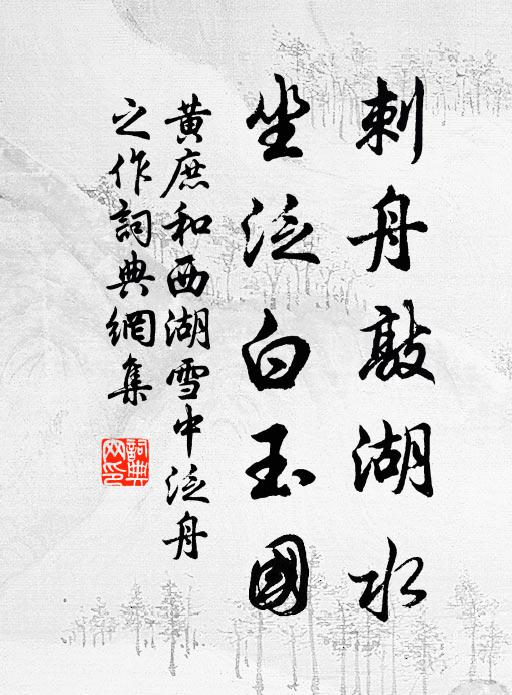 刺舟敲湖水
坐泛白玉國
黃庶和西湖雪中泛舟
之作詞典網集
詞典
網印